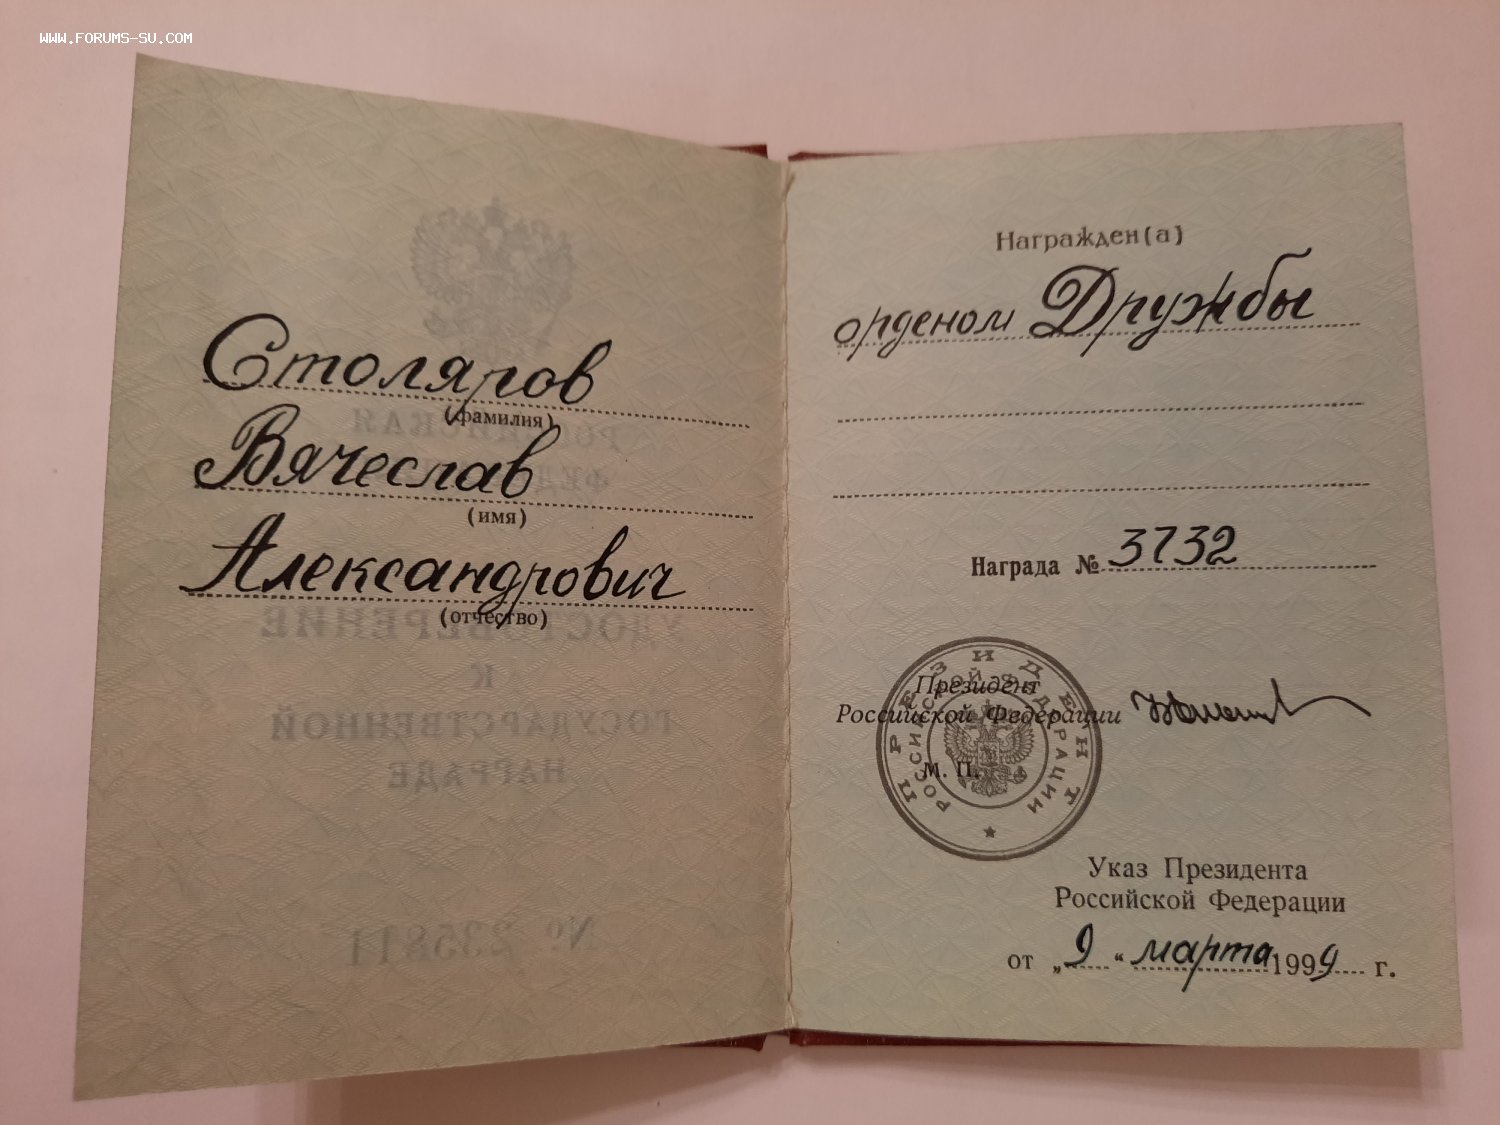 WWW.FORUMS-SU.COM
Столяров
(фамилия)
Вячеслав
(имя)
Александрович
(отчество)
РОССИЙСКАЯ
ФЕДЕРАЦИЯ
УДОСТОВЕРЕНИЕ
К
ГОСУДАРСТВЕННОЙ
НАГРАДЕ
№ 235811
Награжден(а)
орденом Дружбы
Награда № 3732
Президент
Российской Федерации
М. П.
ПРЕЗИДЕНТ
РОССИЙСКОЙ ФЕДЕРАЦИИ
Указ Президента
Российской Федерации
от „9“ марта 1999 г.